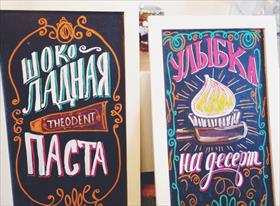 ШОКО
ЛАДНАЯ
THEODENT
ПАСТА
УЛЫБКА
на десерт